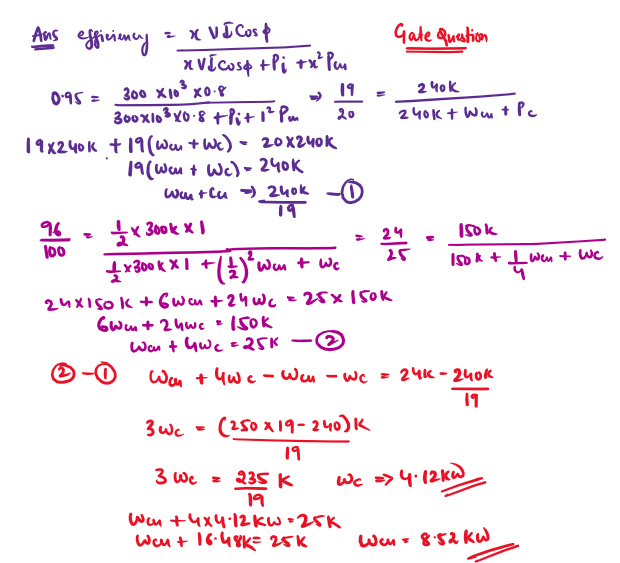 Ans efficiency = x VI Cosϕ / x VI Cosϕ + Pi + x² Pcu Gate Question
0.95 = 300 × 10³ × 0.8 / 300×10³×0.8 + Pi + 1² Pcu ⇒ 19/20 = 240K / 240K + Wcu + Pc
19×240K + 19(Wcu + Wc) = 20×240K
19(Wcu + Wc) = 240K
Wcu + Cu ⇒ 240K/19 — ①
96/100 = 1/2 × 300K × 1 / 1/2 × 300K × 1 + (1/2)² Wcu + Wc = 24/25 = 150K / 150K + 1/4 Wcu + Wc
24×150K + 6Wcu + 24Wc = 25 × 150K
6Wcu + 24Wc = 150K
Wcu + 4Wc = 25K — ②
② - ① Wcu + 4Wc - Wcu - Wc = 24K - 240K/19
3Wc = (250 × 19 - 240)K / 19
3Wc = 235/19 K Wc ⇒ 4.12KW
Wcu + 4×4.12KW = 25K
Wcu + 16.48K = 25K Wcu = 8.52 KW